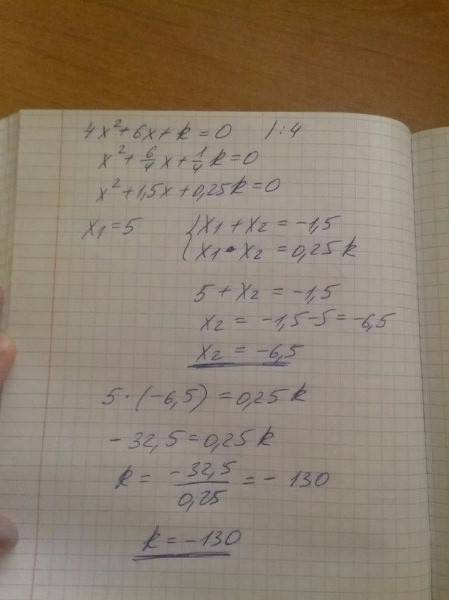 4x²+6x+k=0 /:4
x²+6/4x+1/4k=0
x²+1,5x+0,25k=0
x₁=5 {x₁+x₂=-1,5
x₁•x₂=0,25k
5+x₂=-1,5
x₂=-1,5-5=-6,5
x₂=-6,5
5·(-6,5)=0,25k
-32,5=0,25k
k=-32,5/0,25=-130
k=-130